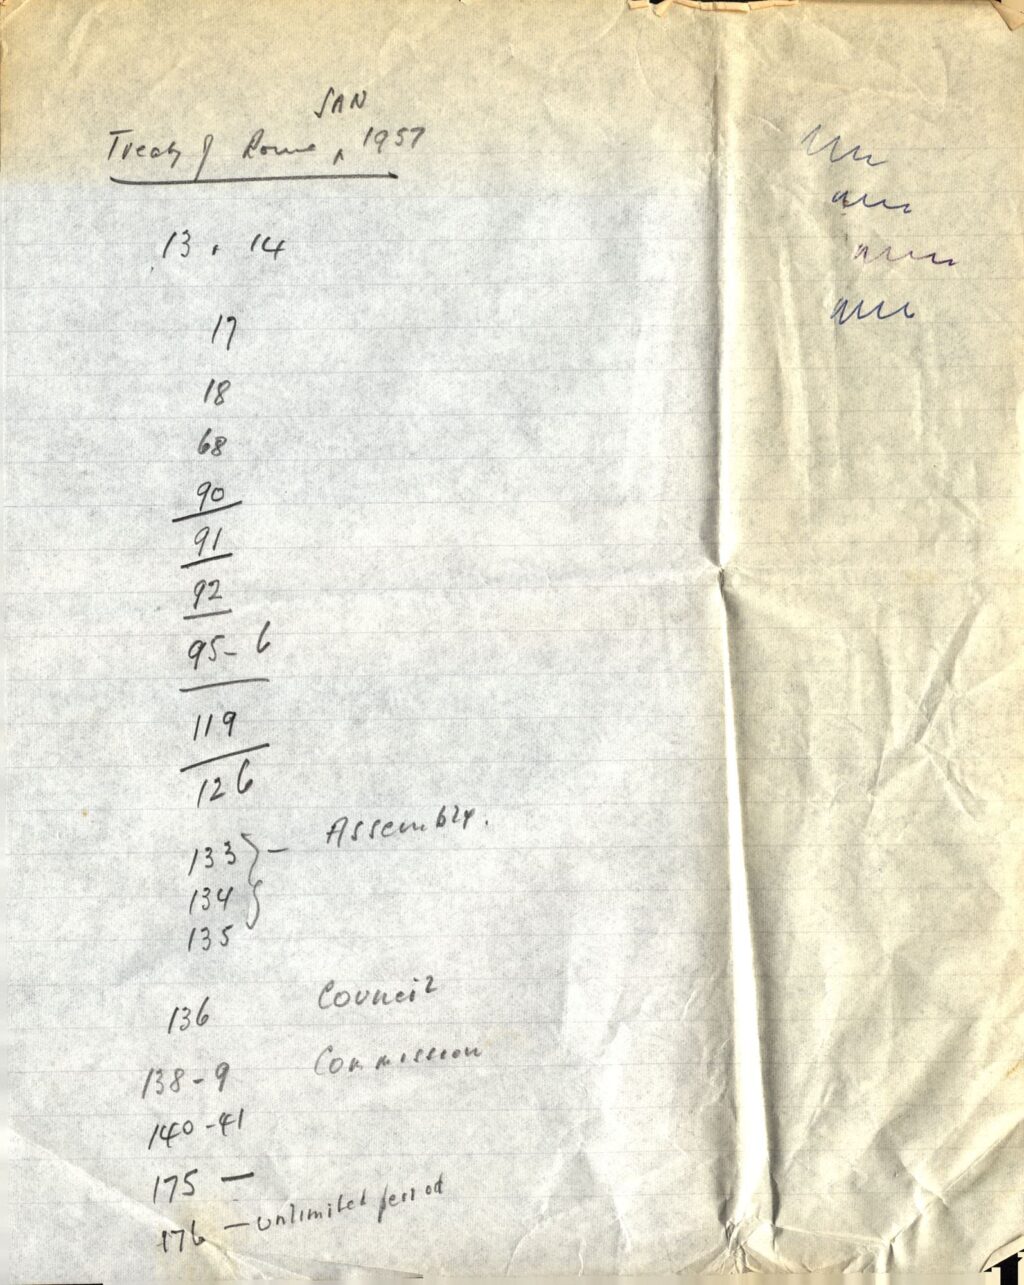 JAN
Treaty of Rome, 1957
13 + 14
17
18
68
90
91
92
95-6
119
126
133 } - Assembly.
134
135
136 Council
138-9 Commission
140-41
175 —
176 — unlimited period